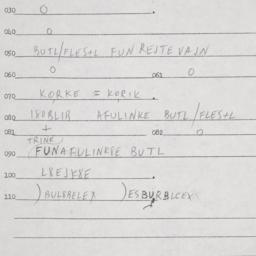 030 O
040 O
050 BUTL/FLES+L FUN REJTE VAJN
060 O 061 O
070 KORKE = KORIK .
080 180BLIR AFULINKE BUTL/FLES+L
081 + 082 O
TRINE/
090 FUNAFULINK8E BUTL
100 L8EJK8E .
110 )BUL8BELEX )ESBURBLCEX